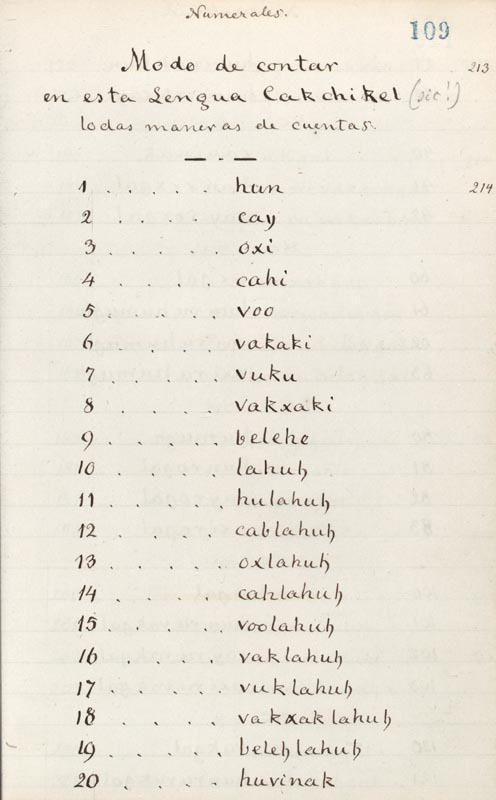 Numerales.
109
Modo de contar 213
en esta Lengua Cakchikel (sic!)
todas maneras de cuentas.
1 . . . . . hun 214
2 . . . . . cay
3 . . . . . oxi
4 . . . . cahi
5 . . . . voo
6 . . . . vakaki
7 . . . . vuku
8 . . . . vakxaki
9 . . . . . belehe
10 . . . . . lahuꜧ
11 . . . . . hulahuꜧ
12 . . . . . cablahuꜧ
13 . . . . . oxlahuꜧ
14 . . . . cahlahuꜧ
15 . . . . . voolahuꜧ
16 . . . . vaklahuꜧ
17 . . . . vuklahuꜧ
18 . . . . vakxaklahuꜧ
19 . . . . beleꜧlahuꜧ
20 . . . . huvinak